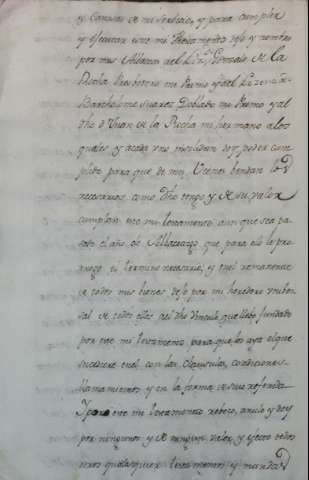 y Causas de mi servicio, y para cumplir
y executar este mi Testamento dejo y nombro
por mis Albaceas al Lizdo Gonzalo de la
Rocha Presbitero mi Primo y al Lizenciado
Bartholome Suares Doblado mi Primo y al
dho Dn Juan de la Rocha mi hermano a los
quales y a cada uno insolidum doy poder cum
plido para que de mis Vienes bendan los
necesarios como dho tengo y de su valor
cumplan este mi testamento, aun que sea pa
sado el año de Albaceazgo que para ello le pro
rrogo el termino necesario, y en el remanente
de todos mis bienes dejo por mi heredero uniber
sal de todos ellos al dho Vinculo que llebo fundado
por este mi testamento para que lo aya el que
sucediere en el con las Clausulas, condiciones
llamamientos y en la forma de suso referida
Y por este mi testamento reboco, anulo y doy
por ningunos y de ningun valor y efecto todos
otros qualesquier testamentos y mandas